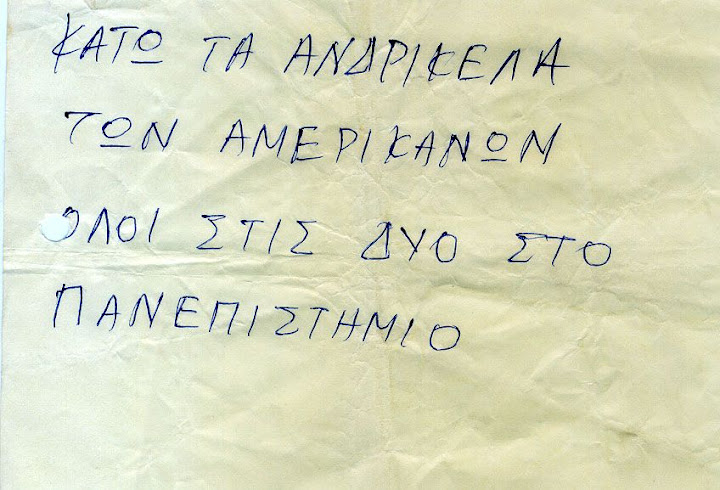 ΚΑΤΩ ΤΑ ΑΝΔΡΙΚΕΛΑ
ΤΩΝ ΑΜΕΡΙΚΑΝΩΝ
ΟΛΟΙ ΣΤΙΣ ΔΥΟ ΣΤΟ
ΠΑΝΕΠΙΣΤΗΜΙΟ